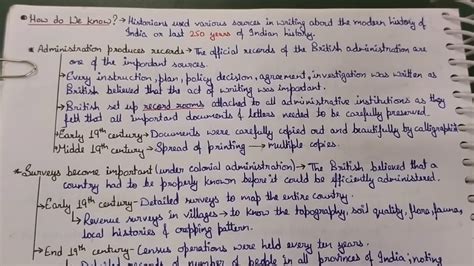 • How do We Know? → Historians used various sources in writing about the modern history of
India or last 250 years of Indian history.
* Administration produces records → The official records of the British administration are
one of the important sources.
→ Every instruction, plan, policy decision, agreement, investigation was written as
British believed that the act of writing was important.
→ British set up record rooms attached to all administrative institutions as they
felt that all important documents & letters needed to be carefully preserved.
→ Early 19th century → Documents were carefully copied out and beautifully by calligraphist
→ Middle 19th century → Spread of printing → multiple copies.
* Surveys become important (under colonial administration) → The British believed that a
country had to be properly known before it could be efficiently administered.
→ Early 19th century - Detailed surveys to map the entire country.
↳ Revenue surveys in villages → to know the topography, soil quality, flora, fauna,
local histories & cropping pattern.
→ End 19th century - Census operations were held every ten years.
↳ Detailed records of number of people in all provinces of India; noting